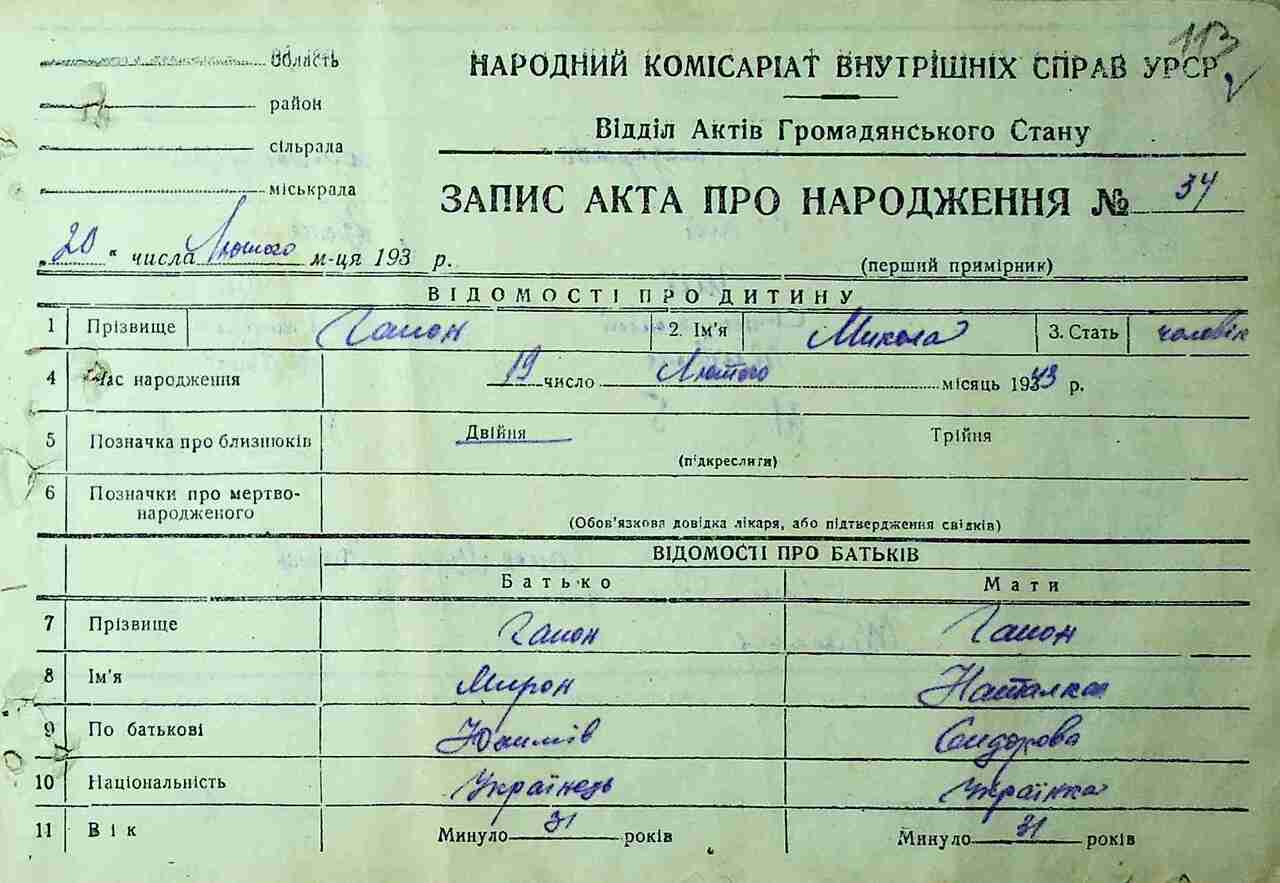 113
область
НАРОДНИЙ КОМІСАРІАТ ВНУТРІШНІХ СПРАВ УРСР
район
Відділ Актів Громадянського Стану
сільрада
міськрада
ЗАПИС АКТА ПРО НАРОДЖЕННЯ № 34
„20" числа Лютого м-ця 193 р.
(перший примірник)
ВІДОМОСТІ ПРО ДИТИНУ
1 Прізвище Гапон 2. Ім'я Микола 3. Стать чоловік
4 Час народження 19 число Лютого місяць 1943 р.
5 Позначка про близнюків Двійня Трійня
(підкреслити)
6 Позначки про мертво-
народженого
(Обов'язкова довідка лікаря, або підтвердження свідків)
ВІДОМОСТІ ПРО БАТЬКІВ
Батько Мати
7 Прізвище Гапон Гапон
8 Ім'я Мирон Наталка
9 По батькові Юхимів Сидорова
10 Національність Українець Українка
11 Вік Минуло 31 років Минуло 31 років